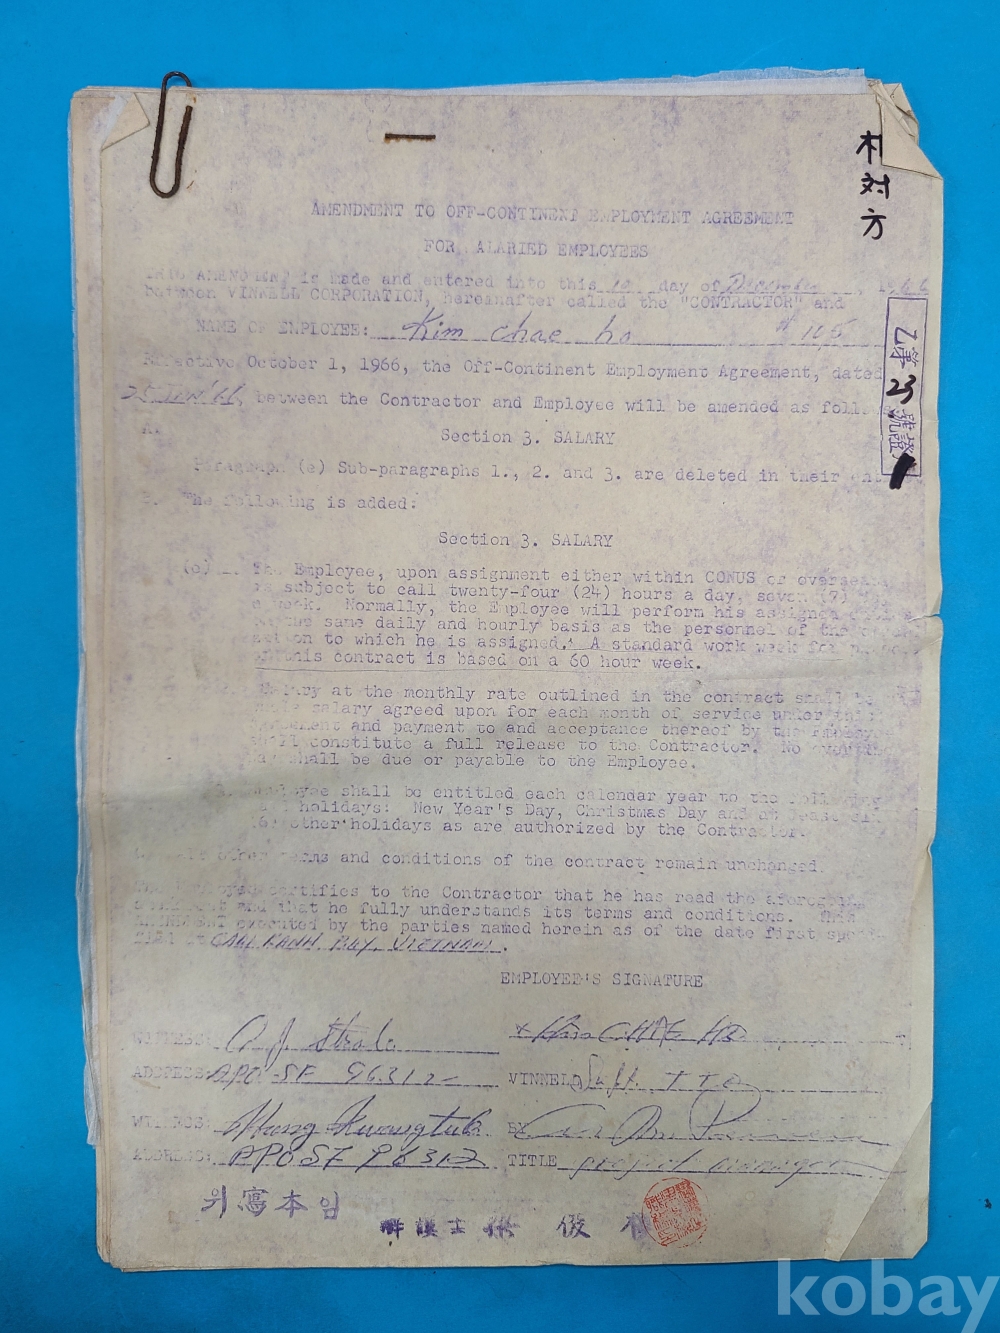 相對方
AMENDMENT TO OFF-CONTINENT EMPLOYMENT AGREEMENT
FOR ALARIED EMPLOYEES
THIS AMENDMENT is made and entered into this day of December, 1966
between VINNELL CORPORATION, hereinafter called the "CONTRACTOR" and
NAME OF EMPLOYEE: Kim chae ho # 105
Effective October 1, 1966, the Off-Continent Employment Agreement, dated
between the Contractor and Employee will be amended as follows
乙第23號證
A.
Section 3. SALARY
Paragraph (e) Sub-paragraphs 1., 2. and 3. are deleted in their
B. The following is added:
Section 3. SALARY
(e) 1. The Employee, upon assignment either within CONUS or overseas
is subject to call twenty-four (24) hours a day, seven (7)
a week. Normally, the Employee will perform his assigned
on the same daily and hourly basis as the personnel of the
to which he is assigned. A standard work week for
this contract is based on a 60 hour week.
Salary at the monthly rate outlined in the contract shall be
salary agreed upon for each month of service under this
agreement and payment to and acceptance thereof by the Employee
shall constitute a full release to the Contractor. No overtime
pay shall be due or payable to the Employee.
3. Employee shall be entitled each calendar year to the following
holidays: New Year's Day, Christmas Day and at least six
(6) other holidays as are authorized by the Contractor.
other terms and conditions of the contract remain unchanged.
The Employee certifies to the Contractor that he has read the aforegoing
and that he fully understands its terms and conditions. This
AMENDMENT executed by the parties named herein as of the date first
at CAM RANH BAY, VIETNAM.
EMPLOYEE'S SIGNATURE
WITNESS: Kim CHAE HO
ADDRESS: APO SF 96312 VINNELL
WITNESS: BY
ADDRESS: APO SF 96312 TITLE project manager
의寫本임
辯護士
kobay